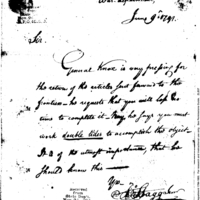 War Department
June 9th 1791.
Sir.
General Knox is very pressing for
the return of the articles just farmed to the
frontiers— he requests that you will lose no
time to complete it— Nay he says you must
work double tides to accomplish the object—
It is of the utmost importance, that he
should know this
Yrs—